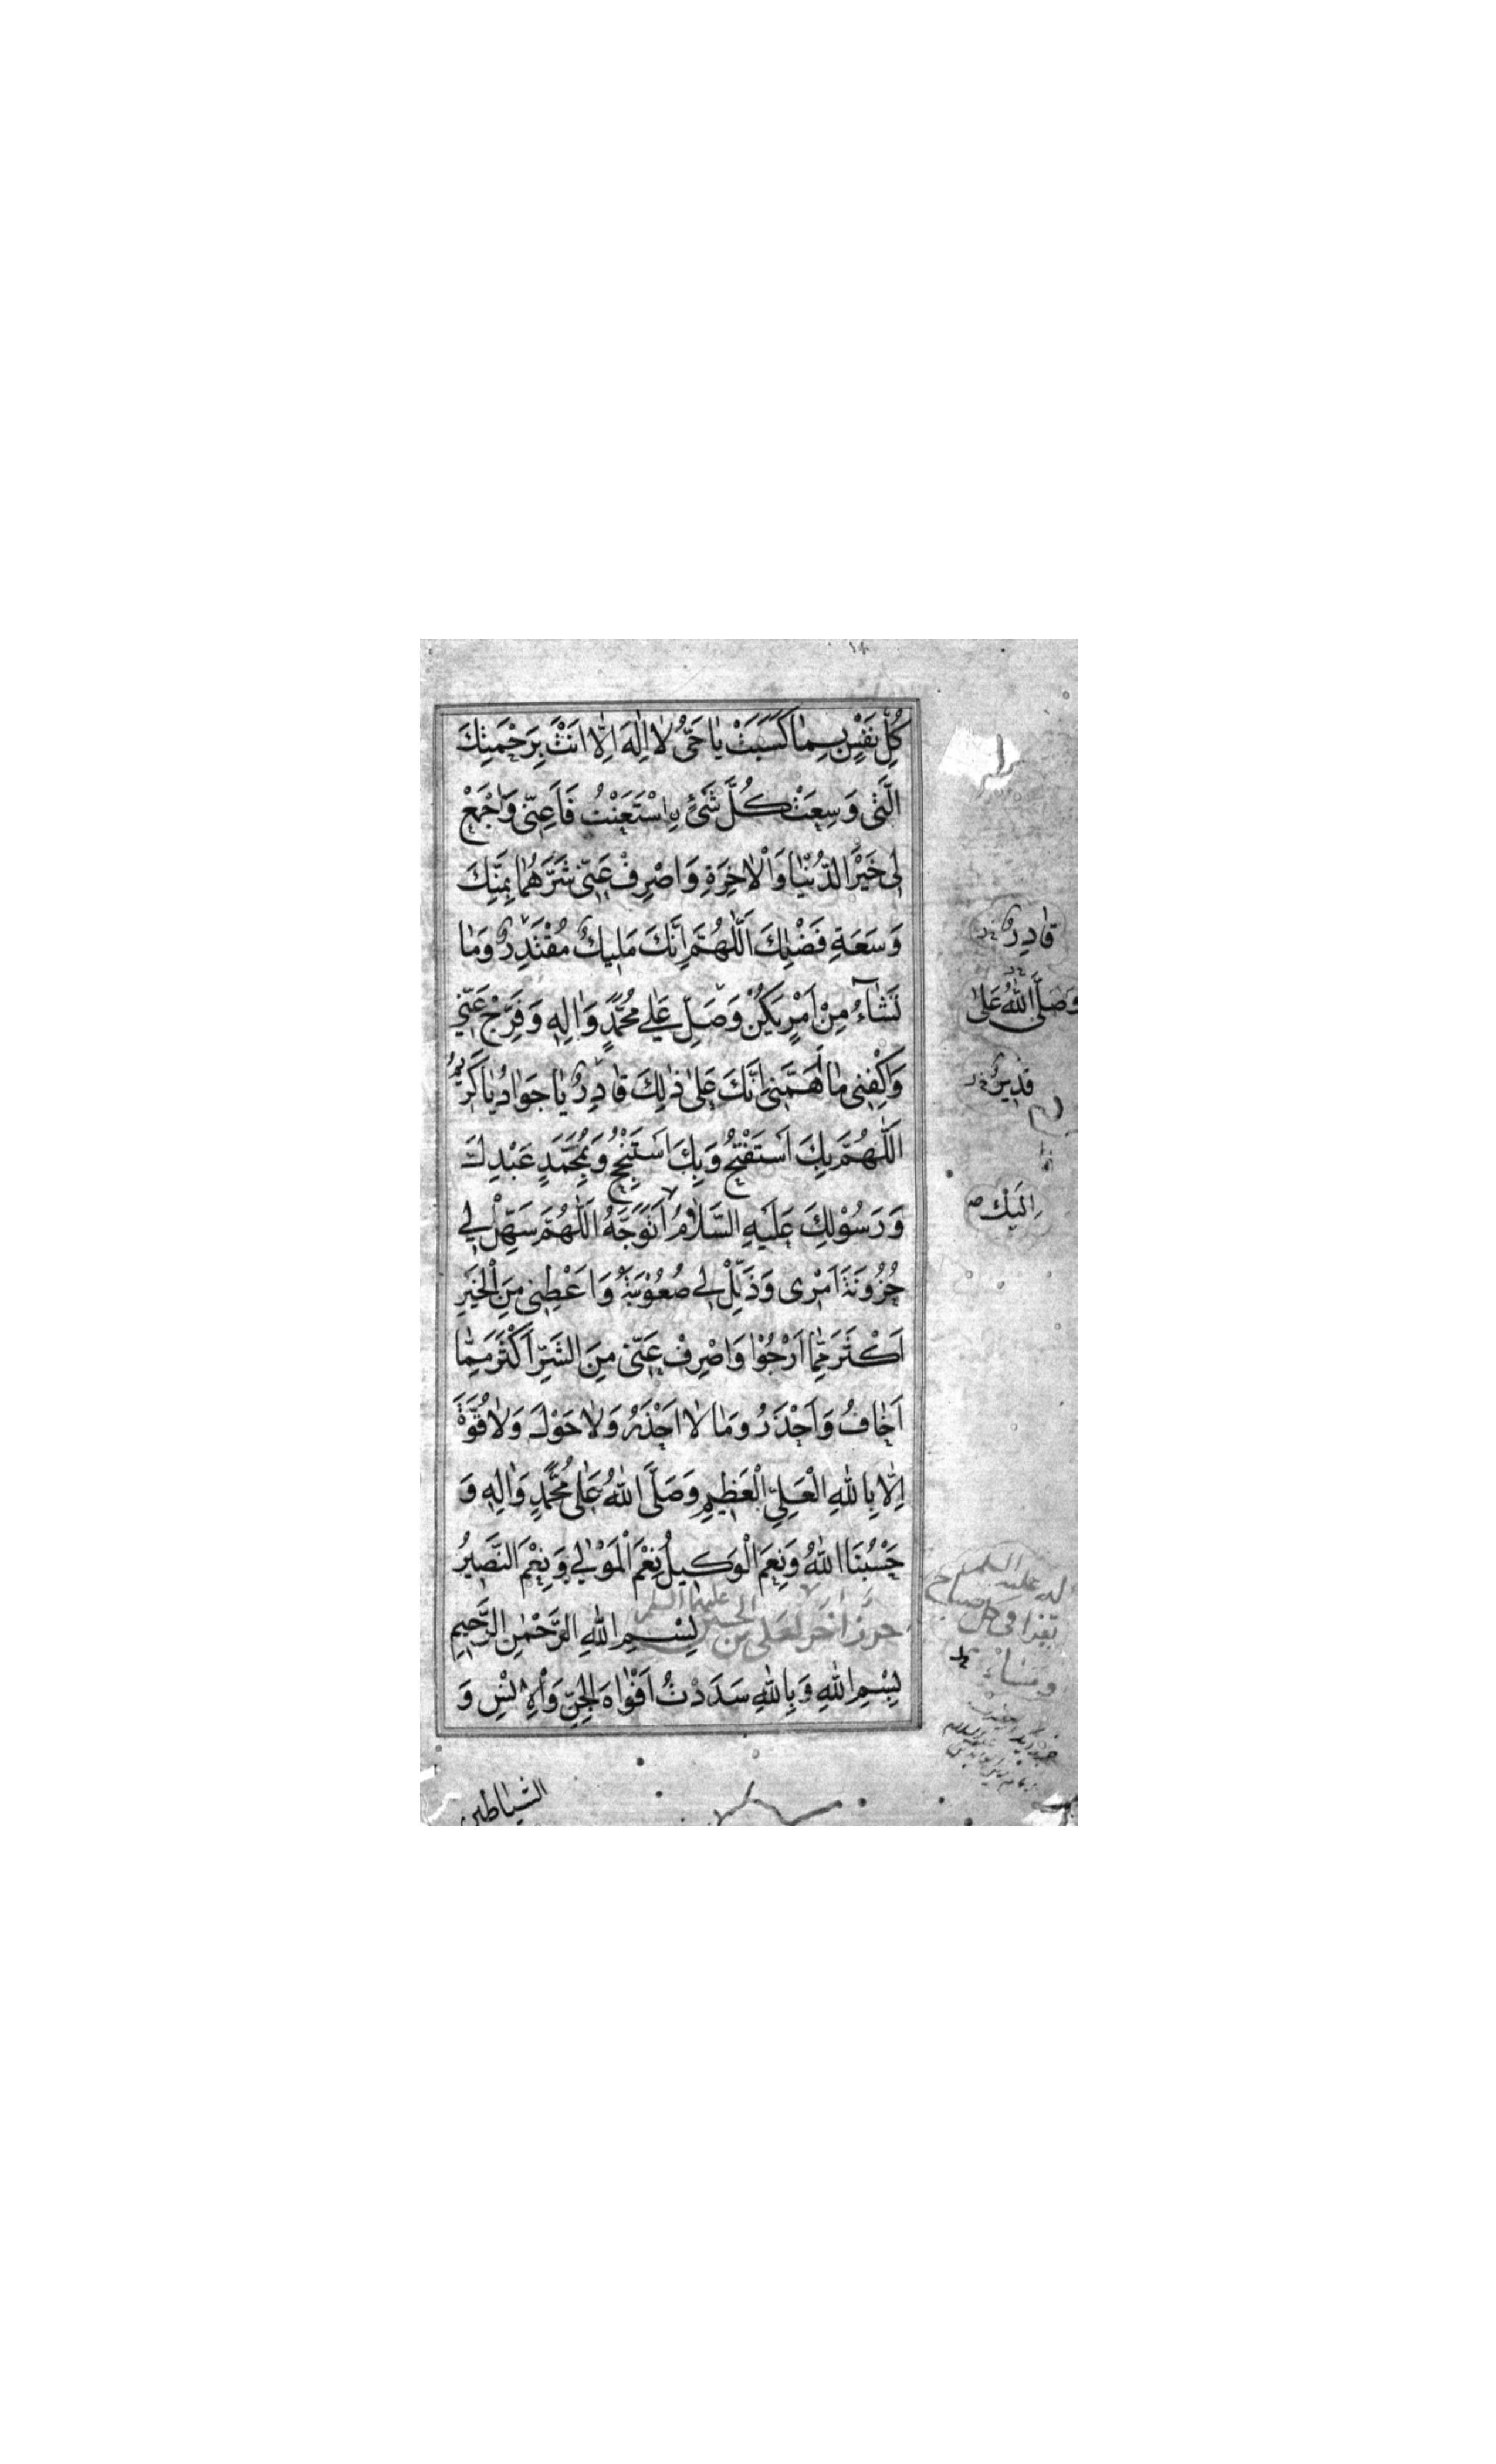 كُلِّ نَفْسٍ بِمٰا كَسَبَتْ يٰا حَيُّ لٰا اِلٰهَ اِلّٰا اَنْتَ بِرَحْمَتِكَ
الَّتٖى وَسِعَتْ كُلَّ شَىْءٍ اِسْتَعَنْتُ فَاَعِنّٖى وَاجْمَعْ
لٖى خَيْرَ الدُّنْيٰا وَالْاٰخِرَةِ وَاصْرِفْ عَنّٖى شَرَّهُمٰا بِمَنِّكَ
وَسَعَةِ فَضْلِكَ اَللّٰهُمَّ اِنَّكَ مَلٖيكٌ مُقْتَدِرٌ وَمٰا
تَشٰاءُ مِنْ اَمْرٍ يَكُنْ وَصَلِّ عَلٰى مُحَمَّدٍ وَاٰلِهٖ وَفَرِّجْ عَنّٖى
وَاكْفِنٖى مٰا اَهَمَّنٖى اِنَّكَ عَلٰى ذٰلِكَ قٰادِرٌ يٰا جَوٰادُ يٰا كَرٖيمُ
اَللّٰهُمَّ بِكَ اَسْتَفْتِحُ وَبِكَ اَسْتَنْجِحُ وَبِمُحَمَّدٍ عَبْدِكَ
وَرَسُوْلِكَ عَلَيْهِ السَّلٰامُ اَتَوَجَّهُ اَللّٰهُمَّ سَهِّلْ لٖى
حُزُوْنَةَ اَمْرٖى وَذَلِّلْ لٖى صُعُوْبَتَهُ وَاَعْطِنٖى مِنَ الْخَيْرِ
اَكْثَرَ مِمّٰا اَرْجُوْا وَاصْرِفْ عَنّٖى مِنَ الشَّرِّ اَكْثَرَ مِمّٰا
اَخٰافُ وَاَحْذَرُ وَمٰا لٰا اَحْذَرُ وَلٰا حَوْلَ وَلٰا قُوَّةَ
اِلّٰا بِاللّٰهِ الْعَلِيِّ الْعَظٖيمِ وَصَلَّى اللّٰهُ عَلٰى مُحَمَّدٍ وَاٰلِهٖ وَ
حَسْبُنَا اللّٰهُ وَنِعْمَ الْوَكٖيلُ نِعْمَ الْمَوْلٰى وَنِعْمَ النَّصٖيرُ
حرز اٰخر لعلى بن الحسين عليهما السلم بِسْمِ اللّٰهِ الرَّحْمٰنِ الرَّحٖيمِ
بِسْمِ اللّٰهِ وَبِاللّٰهِ سَدَدْتُ اَفْوٰاهَ الْجِنِّ وَالْاِنْسِ وَ
الشياطين
قٰادِرٌ
وَصَلَّى اللّٰهُ عَلٰى
قَدٖيرٌ
اِلَيْكَ
له عليه السلم
تقرا فى كل صباح
ومساء